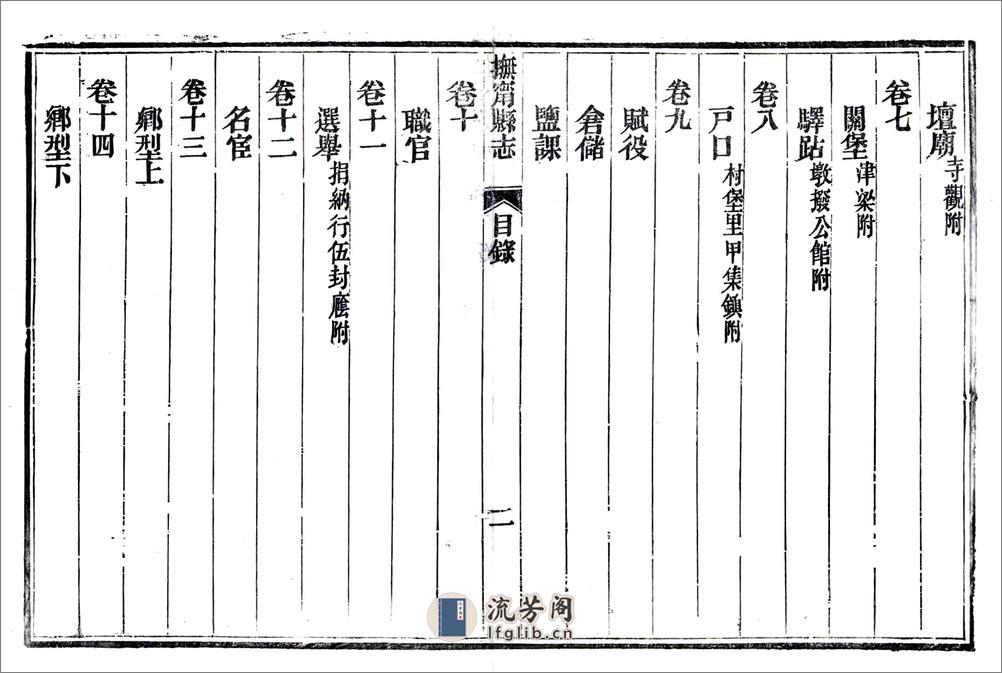 壇廟寺觀附
卷七
關堡津梁附
驛跕墩撥公館附
卷八
戸口村堡里甲集鎮附
卷九
賦役
倉儲
鹽課
撫甯縣志
目錄
二
卷十
職官
卷十一
選舉捐納行伍封廕附
卷十二
名宦
卷十三
鄉型上
卷十四
鄉型下
流芳阁
lfglib.cn